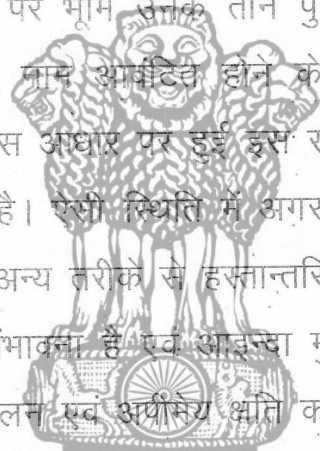 पर भूमि उनके तीन पु
नाम आवंटित होने के
स आधार पर हुई इस र
है। ऐसी स्थिति में अगर
अन्य तरीके से हस्तान्तरि
ंभावना है एवं आइन्दा म
लन एवं अपरिमेय क्षति क